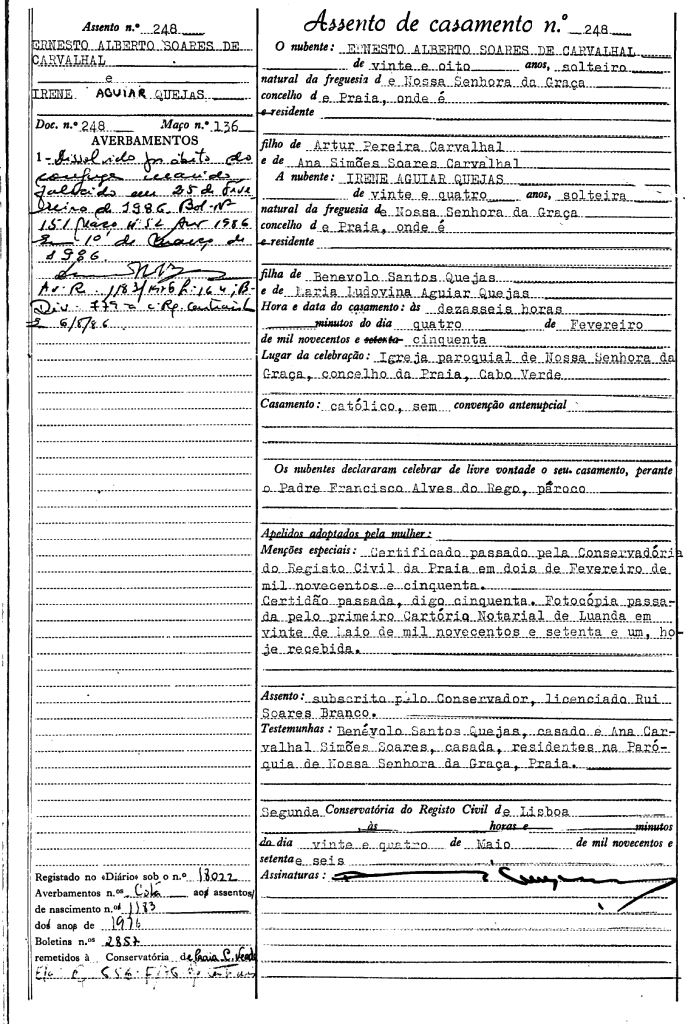 Assento n.º 248
ERNESTO ALBERTO SOARES DE
CARVALHAL
e
IRENE AGUIAR QUEJAS
Doc. n.º 248 Maço n.º 136
AVERBAMENTOS
1 - Dissolvido por óbito do
conjuge marido
falecido em 25 de Feve
reiro de 1986. Bol. Nº
151 Maço nº 51 Ano 1986
Em 1º de Março de
1986.
Av. R. 1183/1976
6/8/86
Registado no «Diário» sob o n.º 13022
Averbamentos n.os Cotá aos assentos
de nascimento n.os 1183
dos anos de 1976
Boletins n.os 2857
remetidos à Conservatória de Praia C. Verde
656
Assento de casamento n.º 248
O nubente: ERNESTO ALBERTO SOARES DE CARVALHAL
de vinte e oito anos, solteiro
natural da freguesia d e Nossa Senhora da Graça
concelho d e Praia, onde é
e residente
filho de Artur Pereira Carvalhal
e de Ana Simões Soares Carvalhal
A nubente: IRENE AGUIAR QUEJAS
de vinte e quatro anos, solteira
natural da freguesia de Nossa Senhora da Graça
concelho d e Praia, onde é
e residente
filha de Benevolo Santos Quejas
e de Maria Ludovina Aguiar Quejas
Hora e data do casamento: às dezasseis horas
minutos do dia quatro de Fevereiro
de mil novecentos e setenta cinquenta
Lugar da celebração: Igreja paroquial de Nossa Senhora da
Graça, concelho da Praia, Cabo Verde
Casamento: católico, sem convenção antenupcial
Os nubentes declararam celebrar de livre vontade o seu casamento, perante
o Padre Francisco Alves do Rego, pároco
Apelidos adoptados pela mulher:
Menções especiais: Certificado passado pela Conservadória
do Registo Civil da Praia em dois de Fevereiro de
mil novecentos e cinquenta.
Certidão passada, digo cinquenta. Fotocópia passa-
da pelo primeiro Cartório Notarial de Luanda em
vinte de Maio de mil novecentos e setenta e um, ho-
je recebida.
Assento: subscrito pelo Conservador, licenciado Rui
Soares Branco.
Testemunhas: Benévolo Santos Quejas, casado e Ana Car-
valhal Simões Soares, casada, residentes na Paró-
quia de Nossa Senhora da Graça, Praia.
Segunda Conservatória do Registo Civil de Lisboa
às horas e minutos
do dia vinte e quatro de Maio de mil novecentos e
setenta e seis
Assinaturas: